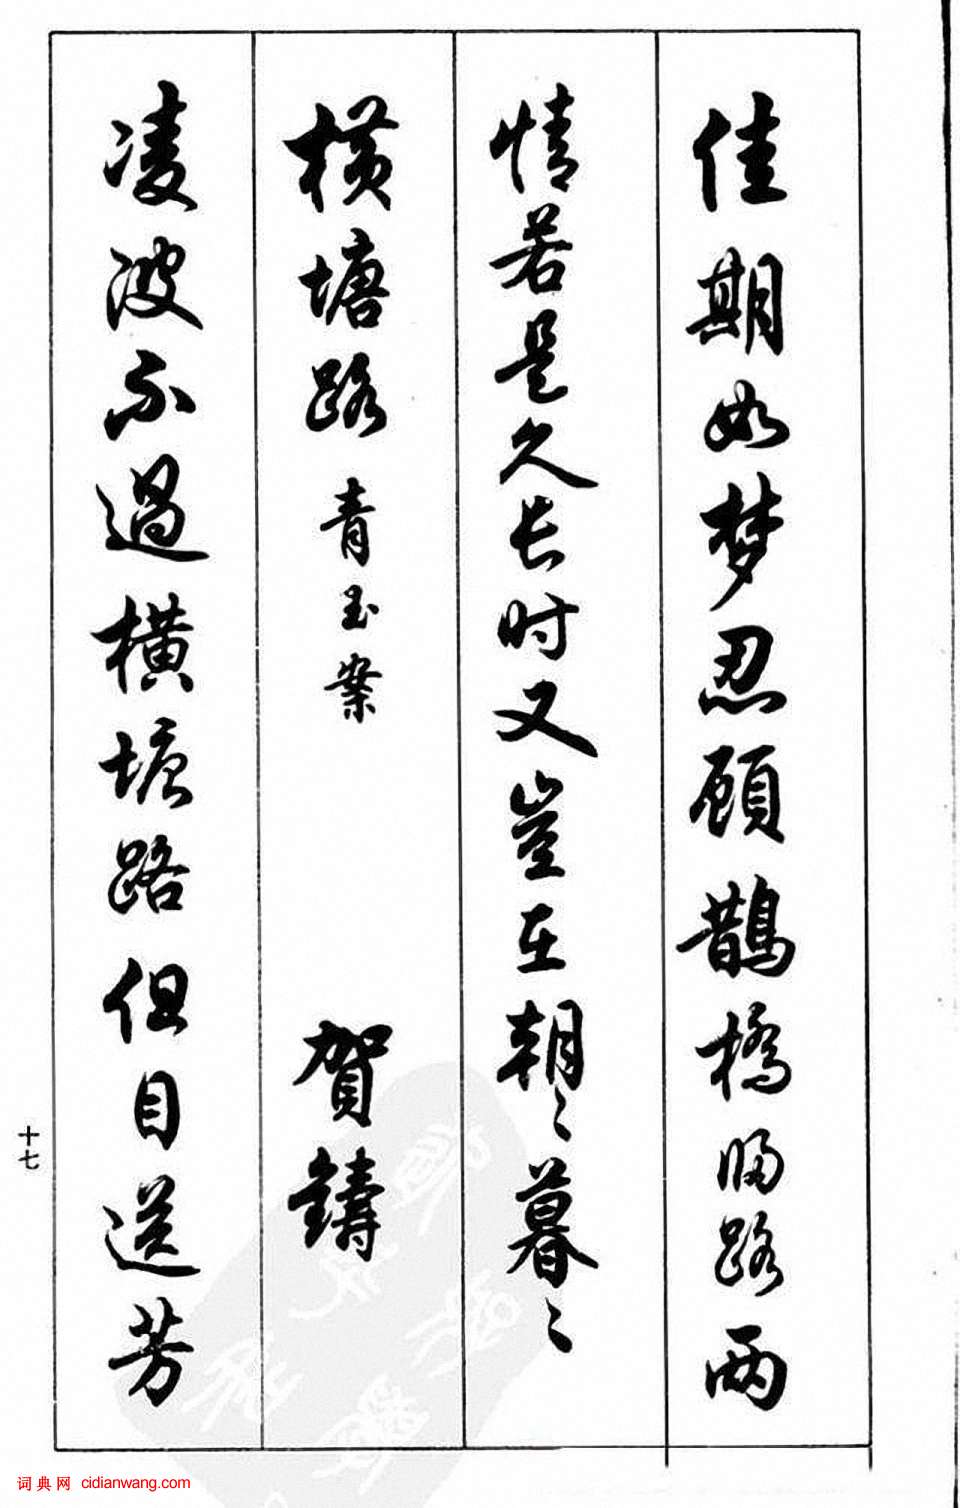 佳期如梦忍顾鹊橋归路两
情若是久长时又豈在朝〻暮〻
横塘路 青玉案 賀鑄
凌波不過横塘路但目送芳
十七
词典网 cidianwang.com